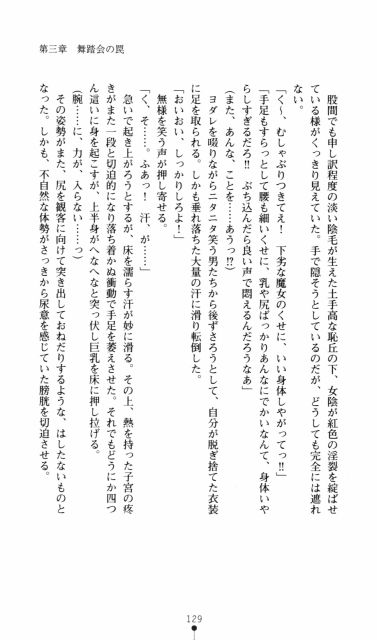 第三章　舞踏会の罠
股間でも申し訳程度の淡い陰毛が生えた土手高な恥丘の下、女陰が紅色の淫裂を綻ばせ
ている様がくっきり見えていた。手で隠そうとしているのだが、どうしても完全には遮れ
ない。
「く～、むしゃぶりつきてえ！　下劣な魔女のくせに、いい身体しやがってっ!!」
「手足もすらっとして腰も細いくせに、乳や尻ばっかりあんなにでかいなんて、身体いや
らしすぎるだろ!!　ぶち込んだら良い声で悶えるんだろうなあ」
（また、あんな、ことを……あうっ!?）
ヨダレを啜りながらニタニタ笑う男たちから後ずさろうとして、自分が脱ぎ捨てた衣装
に足を取られる。しかも垂れ落ちた大量の汗に滑り転倒した。
「おいおい、しっかりしろよ！」
無様を笑う声が押し寄せる。
「く、そ……。ふあっ！　汗、が……」
急いで起き上がろうとするが、床を濡らす汗が妙に滑る。その上、熱を持った子宮の疼
きがまた一段と切迫的になり落ち着かぬ衝動で手足を萎えさせた。それでもどうにか四つ
ん這いに身を起こすが、上半身がへなへなと突っ伏し巨乳を床に押し拉げる。
（腕……に、力が、入らない……っ）
その姿勢がまた、尻を観客に向けて突き出しておねだりするような、はしたないものと
なった。しかも、不自然な体勢がさっきから尿意を感じていた膀胱を切迫させる。
129